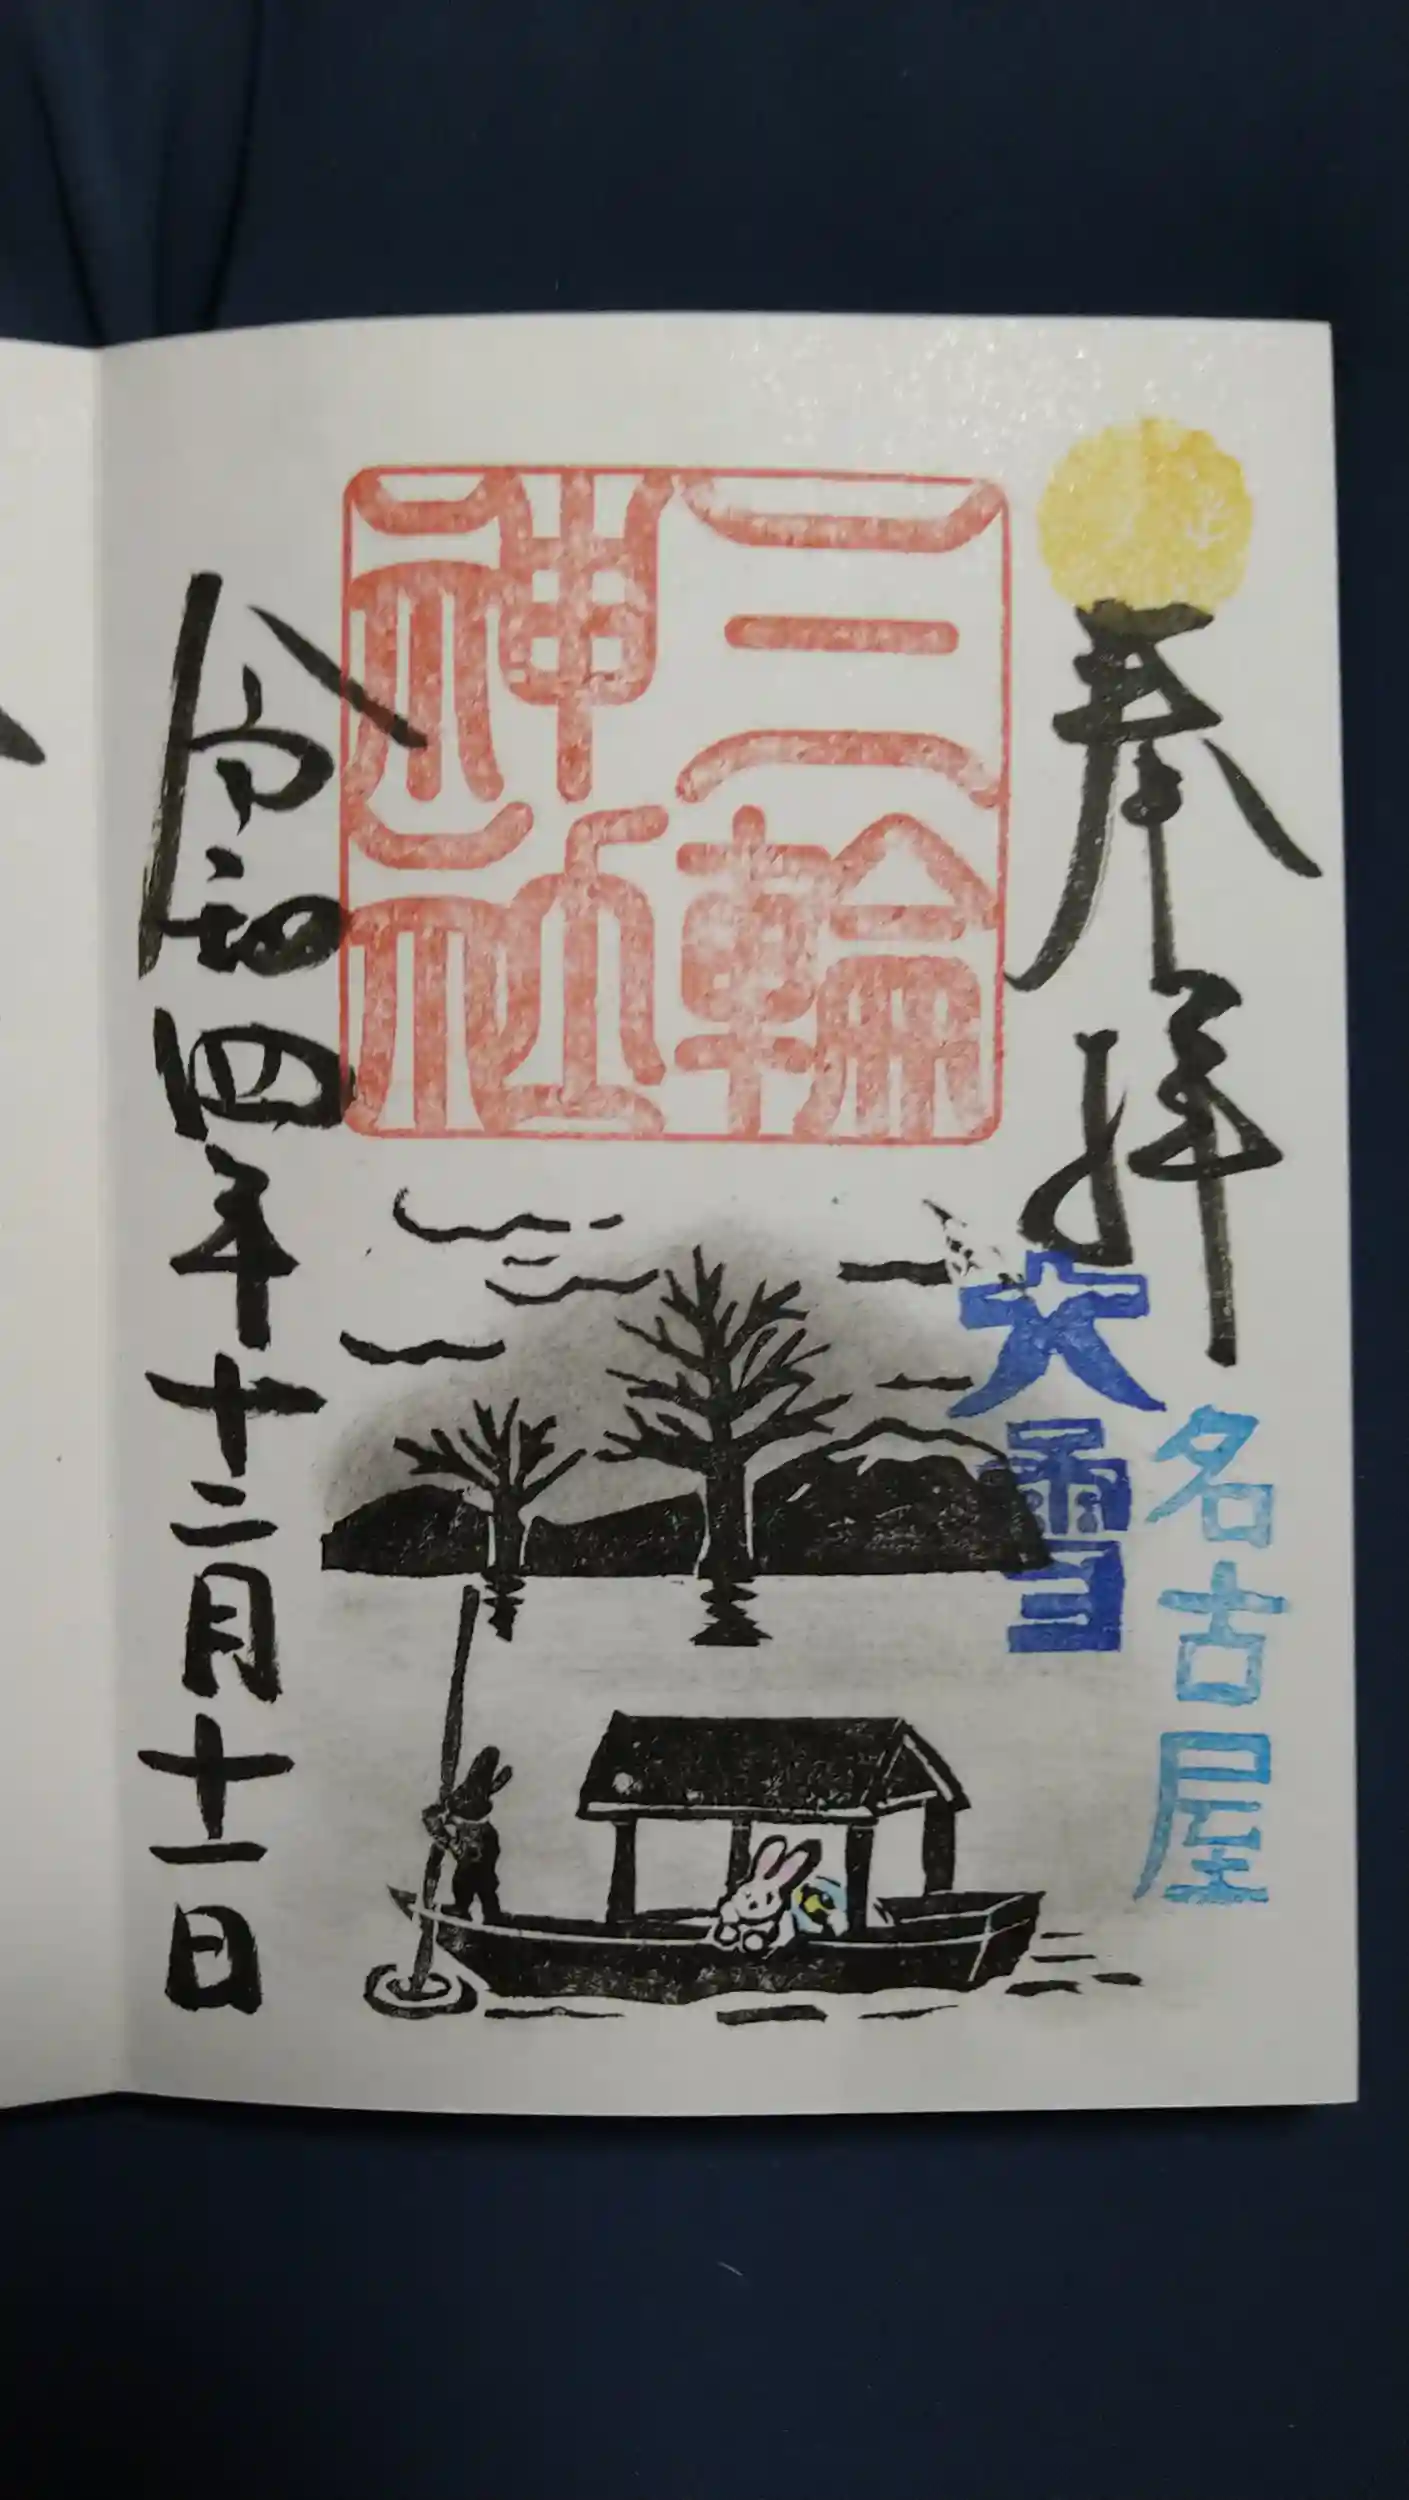 奉拝
名古屋
大雪
三輪
神社
令和四年十二月十一日